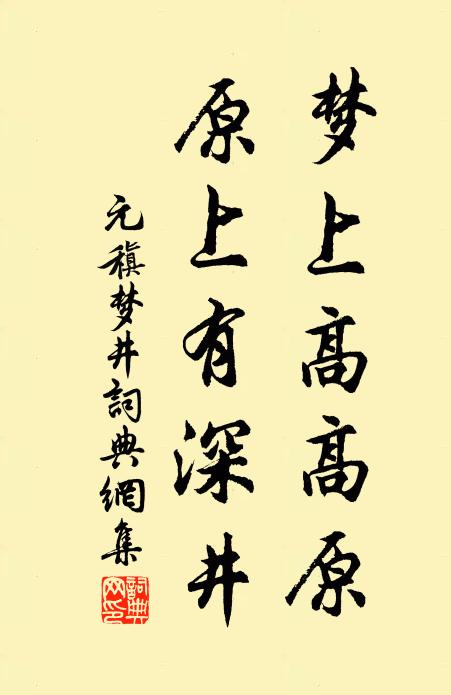 梦上高高原
原上有深井
元稹梦井詞典網集
詞典
网印